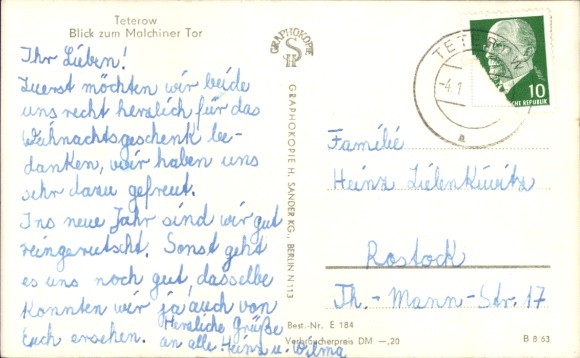 Teterow
Blick zum Malchiner Tor
Ihr Lieben!
Zuerst möchten wir beide
uns recht herzlich für das
Weihnachtsgeschenk be-
danken, wir haben uns
sehr dazu gefreut.
Ins neue Jahr sind wir gut
reingerutscht. Sonst geht
es uns noch gut, dasselbe
konnten wir ja auch von
Euch ersehen. Herzliche Grüße
an alle Heinz u. Wilma
GRAPHOKOPIE
GRAPHOKOPIE H. SANDER KG., BERLIN N 113
TETEROW
-4.1
a
10
SCHE REPUBLIK
Familie
Heinz Lielenkiwitz
Rostock
Th.-Mann-Str. 17
Best.-Nr. E 184
Verbraucherpreis DM —,20
B 8/63